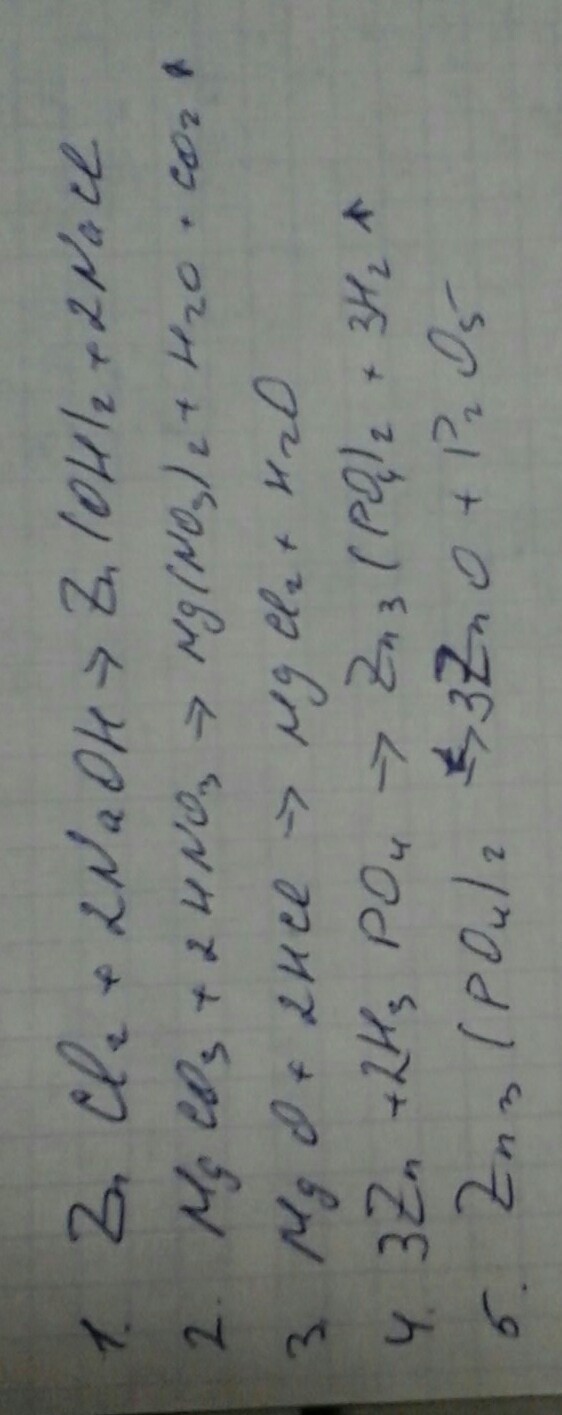 1. ZnCl₂ + 2NaOH => Zn(OH)₂ + 2NaCl
2. MgCO₃ + 2HNO₃ => Mg(NO₃)₂ + H₂O + CO₂ ↑
3 MgO + 2HCl => MgCl₂ + H₂O
4. 3Zn + 2H₃PO₄ => Zn₃(PO₄)₂ + 3H₂ ↑
5. Zn₃(PO₄)₂ => 3ZnO + P₂O₅